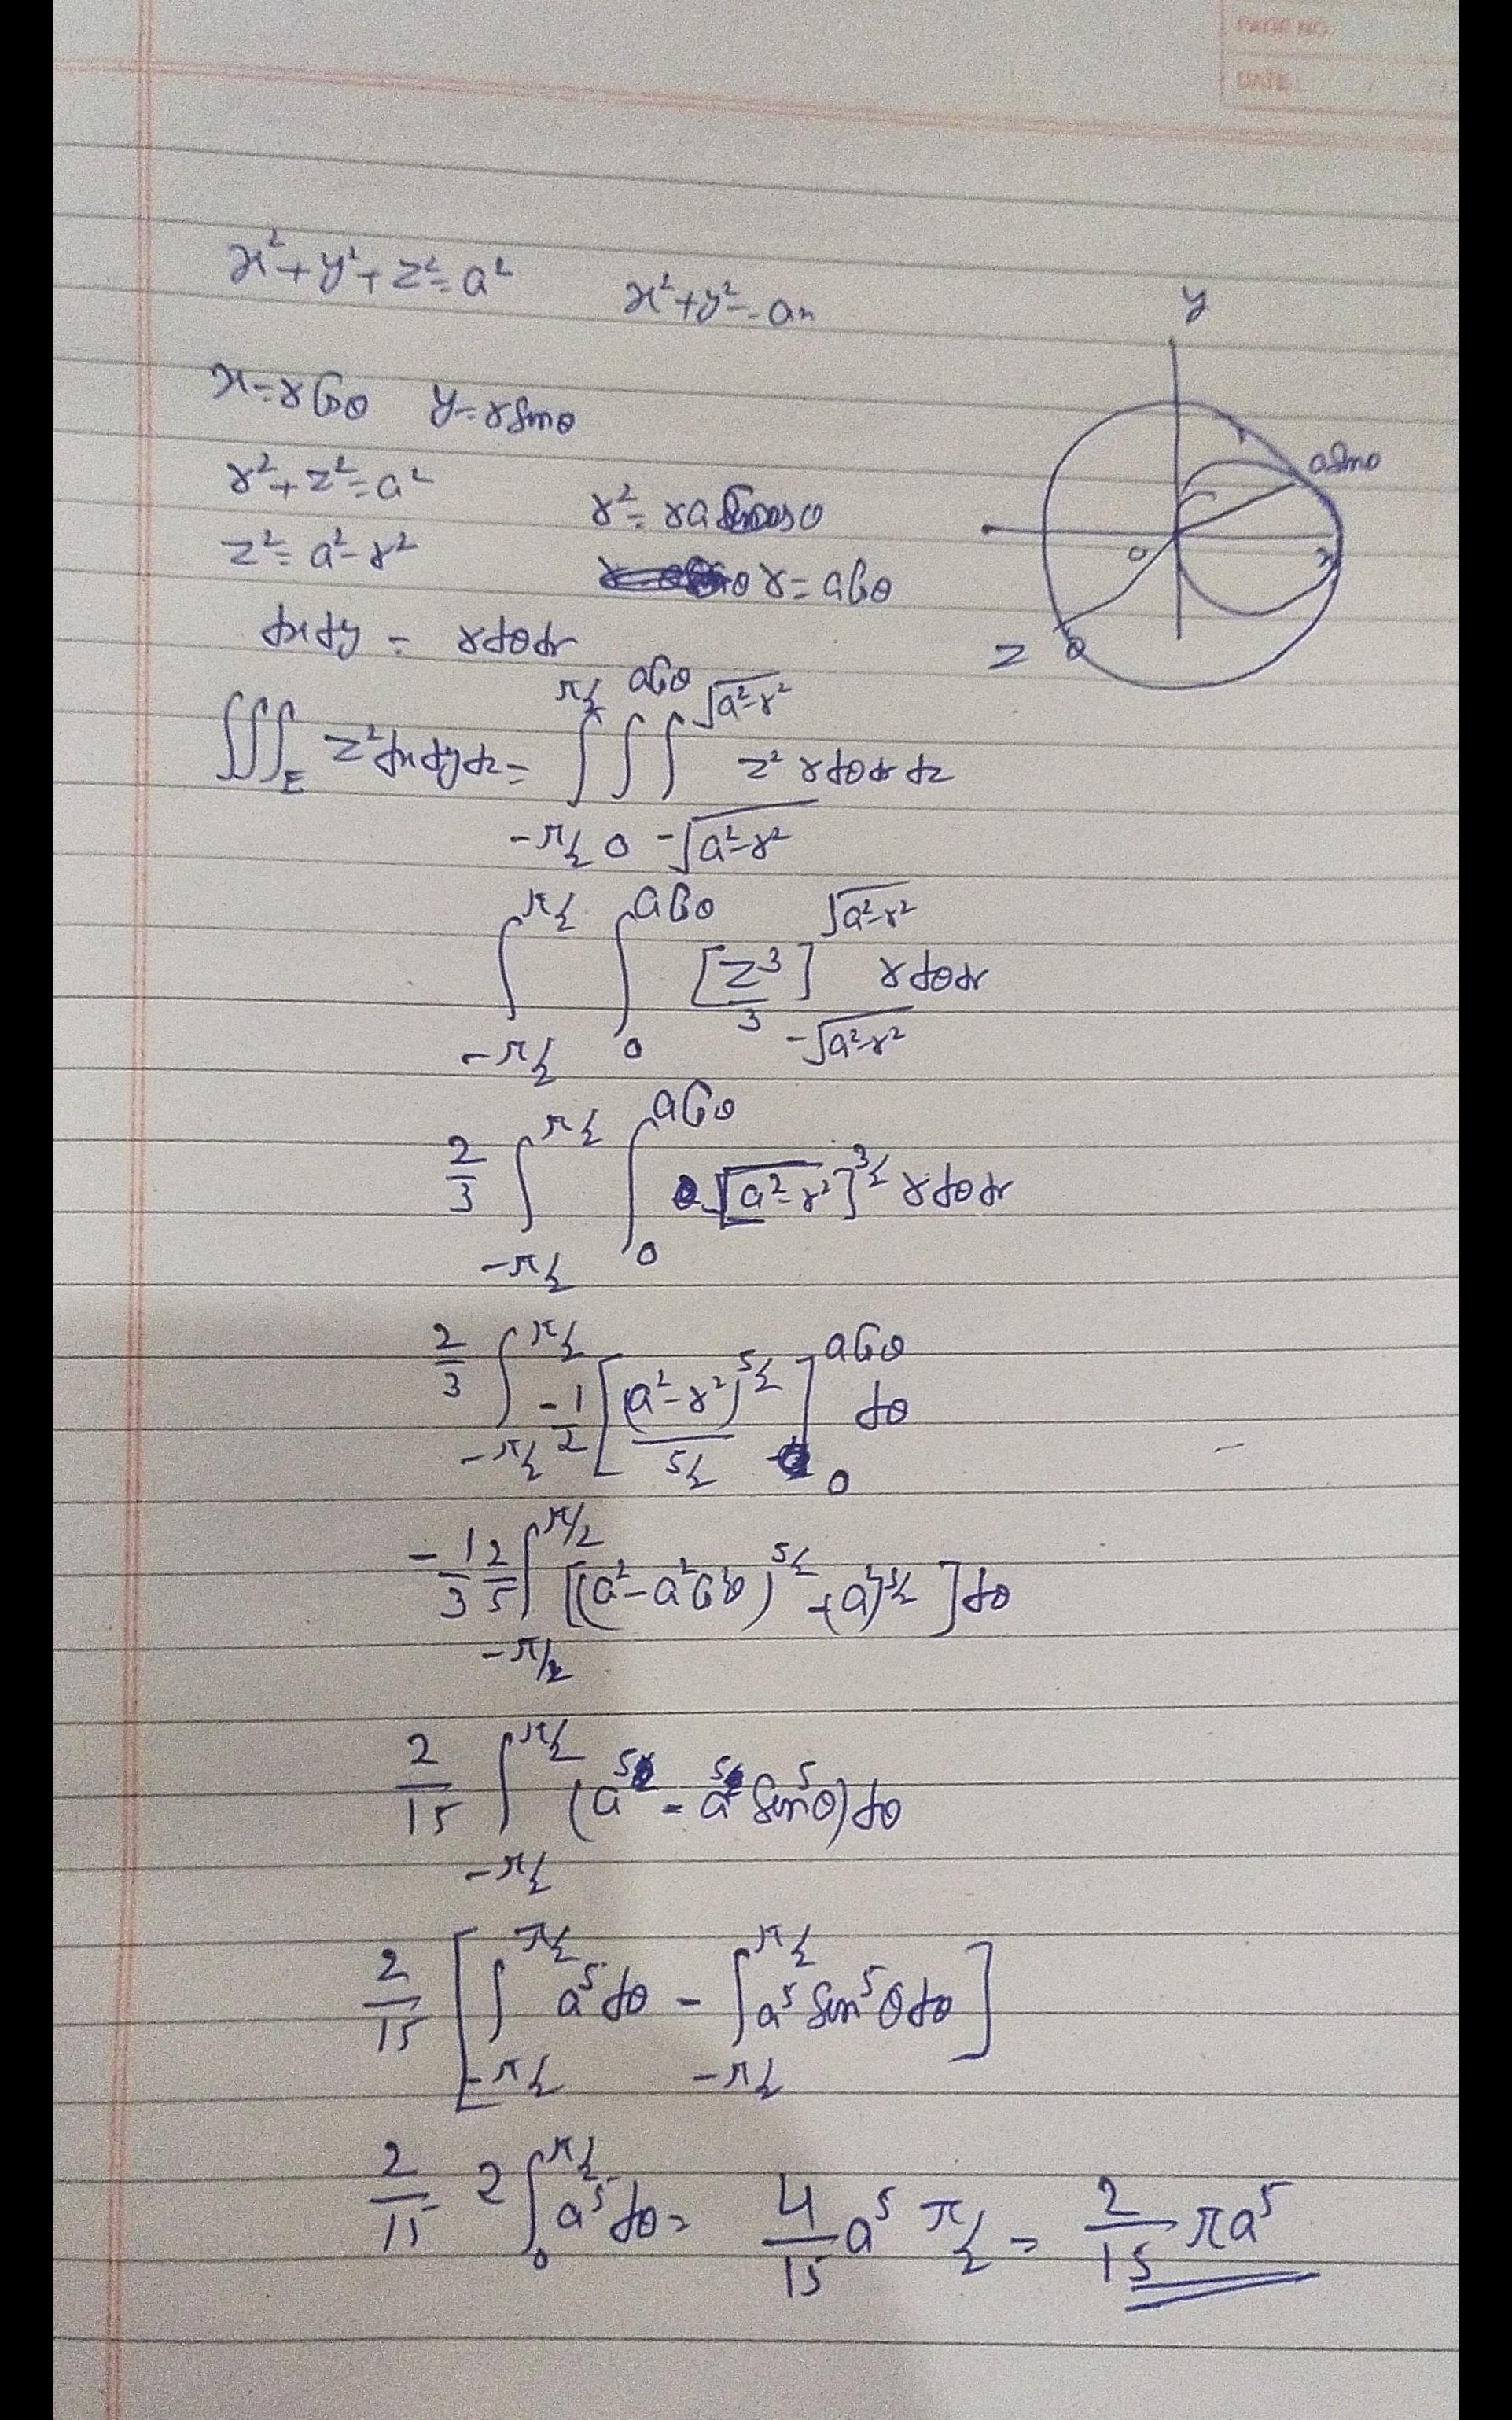 PAGE NO
DATE : / /
x² + y² + z² = a²   x² + y² = ax
x = r Cosθ   y = r Sinθ
r² + z² = a²
z² = a² - r²
r² = r a cosθ
r = a Cosθ
dx dy = r dθ dr
y
a Sinθ
O
x
z
∭_E z² dx dy dz = ∫_{-π/2}^{π/2} ∫_0^{a Cosθ} ∫_{-√(a²-r²)}^{√(a²-r²)} z² r dθ dr dz
∫_{-π/2}^{π/2} ∫_0^{a Cosθ} [z³/3]_{-√(a²-r²)}^{√(a²-r²)} r dθ dr
2/3 ∫_{-π/2}^{π/2} ∫_0^{a Cosθ} [a² - r²]^{3/2} r dθ dr
2/3 ∫_{-π/2}^{π/2} -1/2 [(a² - r²)^{5/2} / 5/2]_0^{a Cosθ} dθ
-1/3 2/5 ∫_{-π/2}^{π/2} [(a² - a² Cos²θ)^{5/2} - (a²)^{5/2}] dθ
2/15 ∫_{-π/2}^{π/2} (a⁵ - a⁵ Sin⁵θ) dθ
2/15 [∫_{-π/2}^{π/2} a⁵ dθ - ∫_{-π/2}^{π/2} a⁵ Sin⁵θ dθ]
2/15 2 ∫_0^{π/2} a⁵ dθ = 4/15 a⁵ π/2 = 2/15 πa⁵